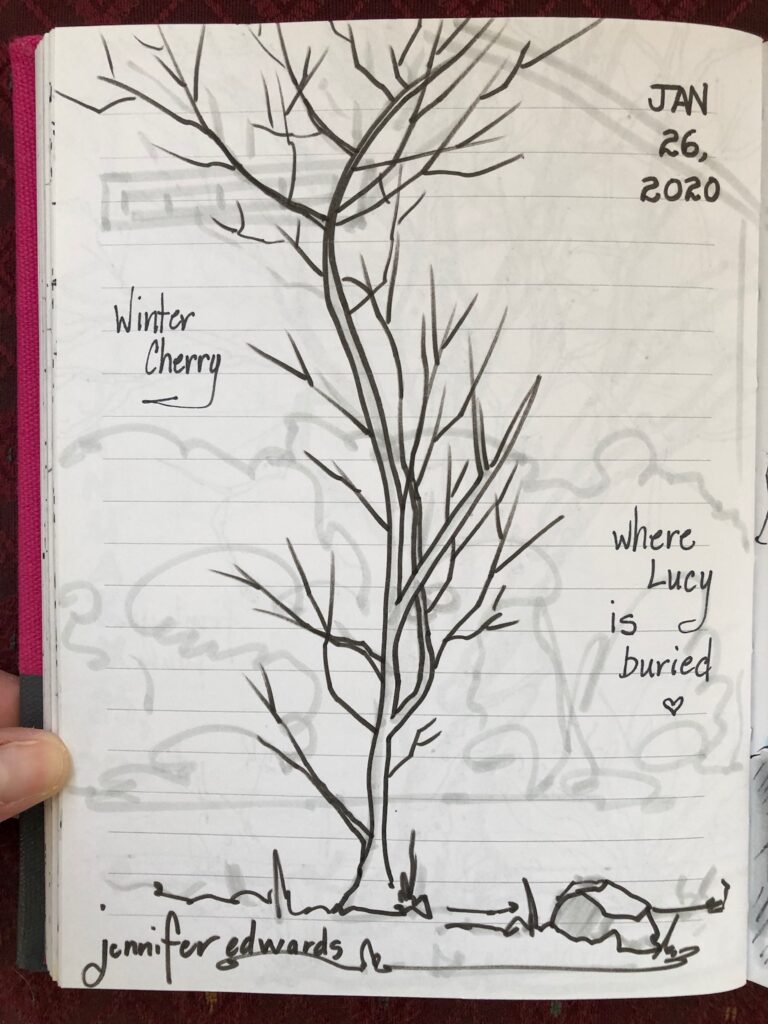 JAN
26,
2020
Winter
Cherry
where
Lucy
is
buried
jennifer edwards